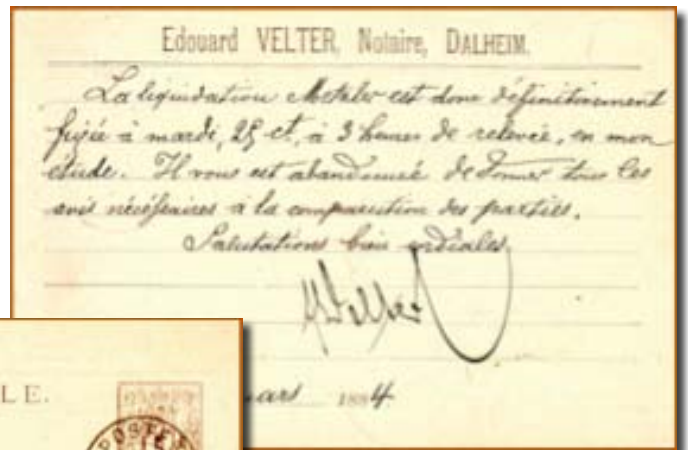 Edouard VELTER, Notaire, DALHEIM.
La liquidation est donc définitivement
fixée à mardi, 25 ct, à 3 heures de relevée, en mon
étude. Il vous est abandonné de donner tous les
avis nécessaires à la comparution des parties.
Salutations bien cordiales,
Velter
ars 1884.
LE.
POSTE